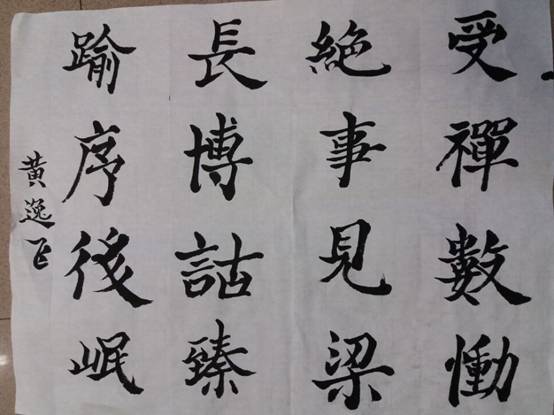 受禪數慟
絶事見梁
長博詁臻
踰序後岷
黃逸飞